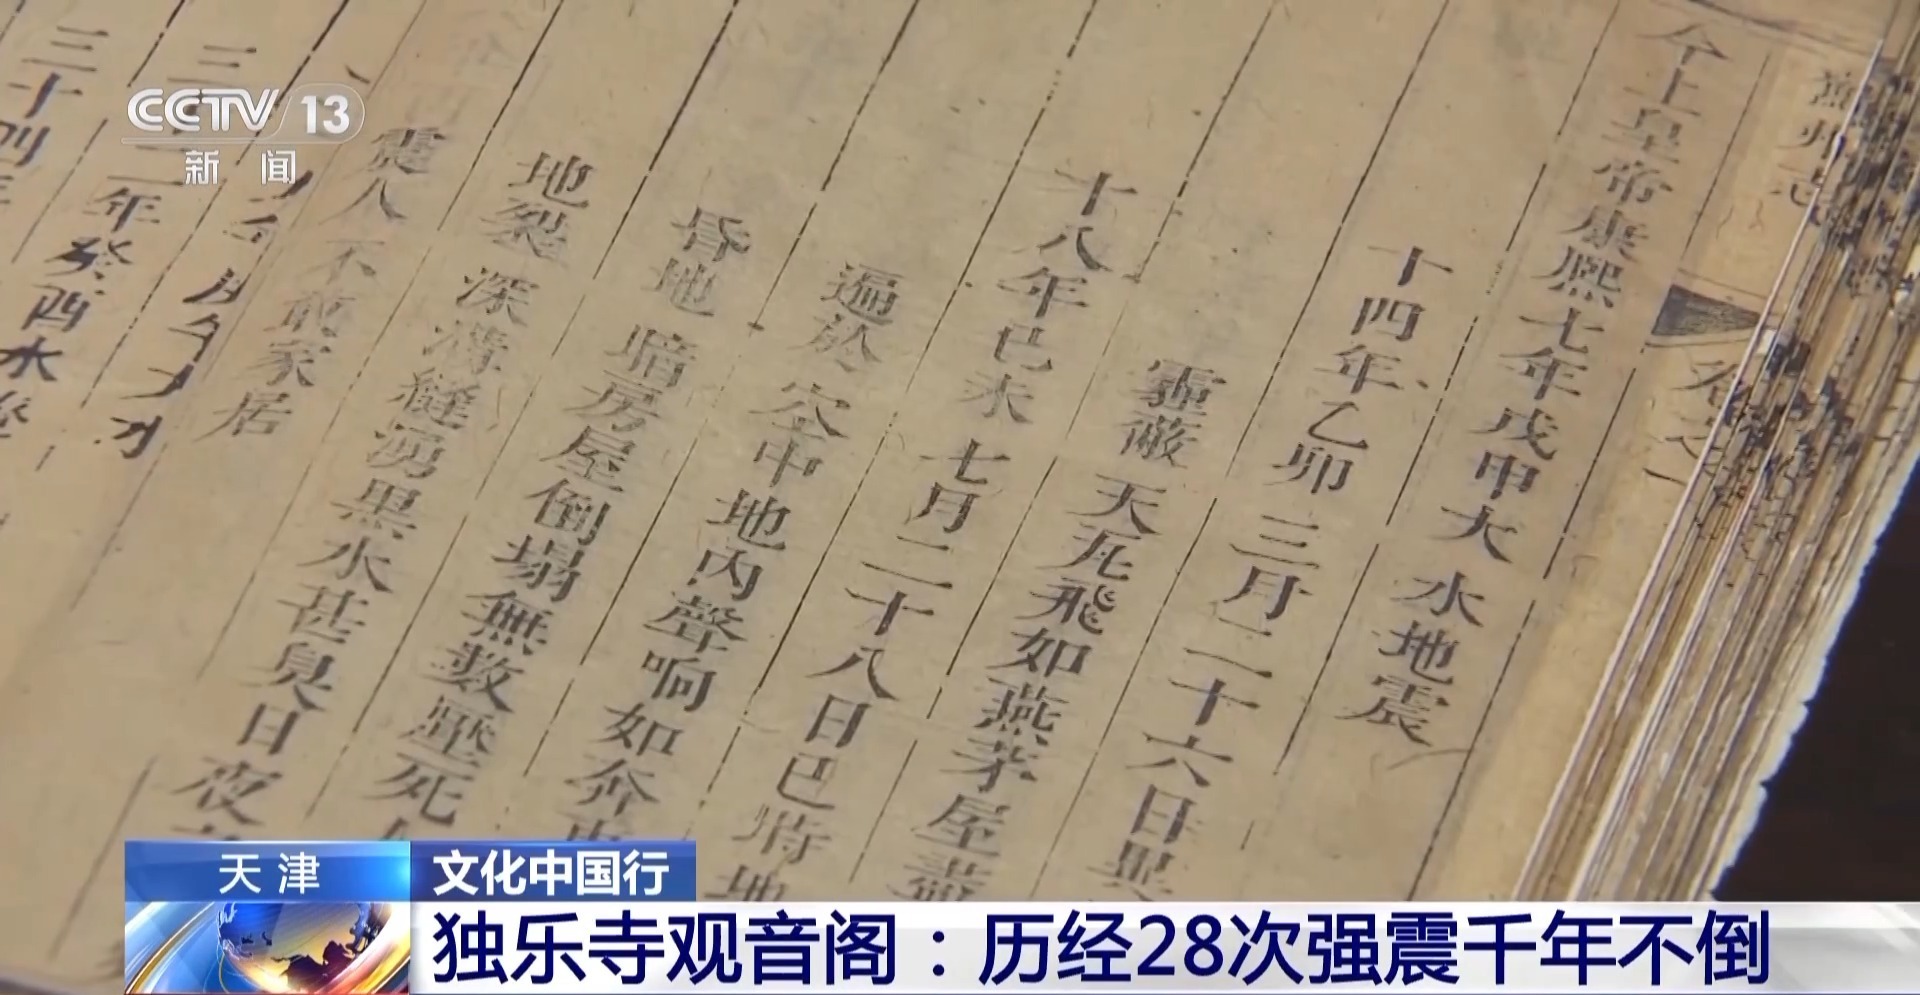 今上皇帝康熙七年戊申大水地震
十四年乙卯三月二十六日異
霾蔽天瓦飛如燕茅屋盡
十八年己未七月二十八日巳時地
遍於空中地内聲响如奔
昏地暗房屋倒塌無數壓死
地裂深溝縫湧黑水甚臭日夜
震人不敢家居
年癸酉水
三十四年
CCTV 13
新闻
天津
文化中国行
独乐寺观音阁：历经28次强震千年不倒